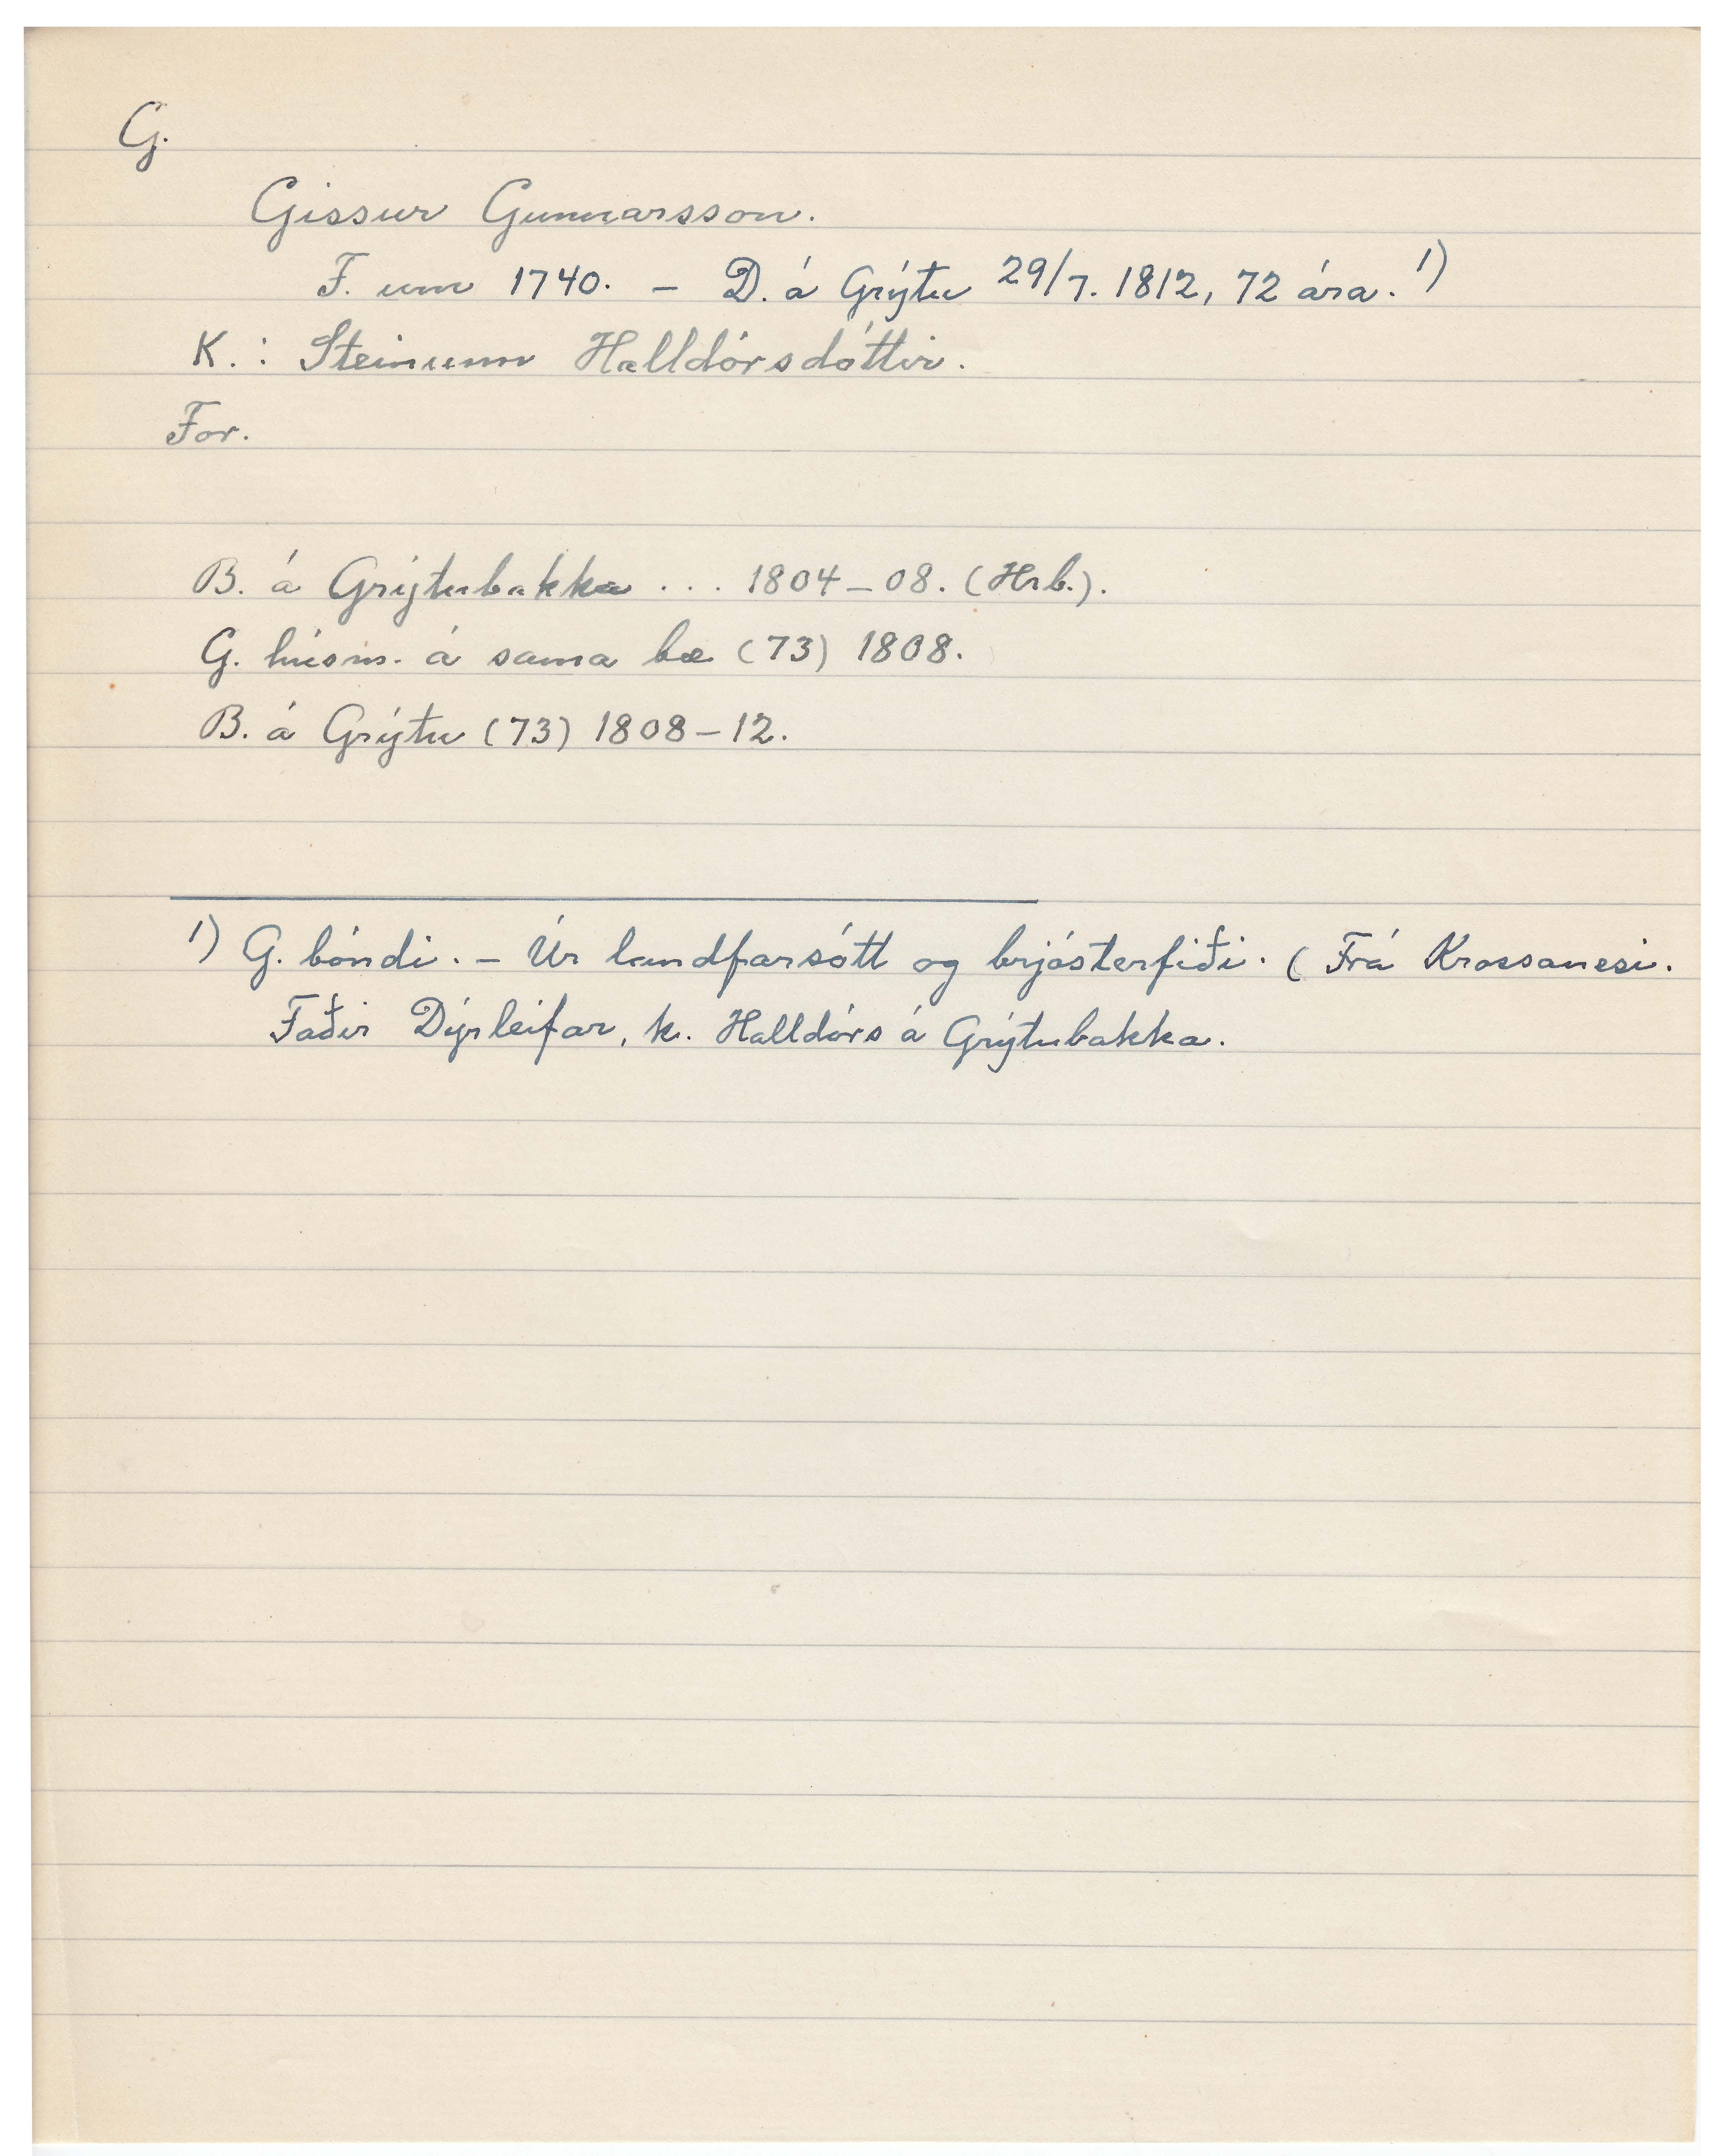 G.
Gissur Gunnarsson.
F. um 1740. – D. á Grýtu 29/7. 1812, 72 ára. 1)
K.: Steinunn Halldórsdóttir.
For.
B. á Grýtubakka ... 1804–08. (Hrb.).
G. húsm. á sama bæ (73) 1808.
B. á Grýtu (73) 1808–12.
1) G. bóndi. – Úr landfarsótt og brjósterfiði. (Frá Krossanesi.
Faðir Dýrleifar, k. Halldórs á Grýtubakka.